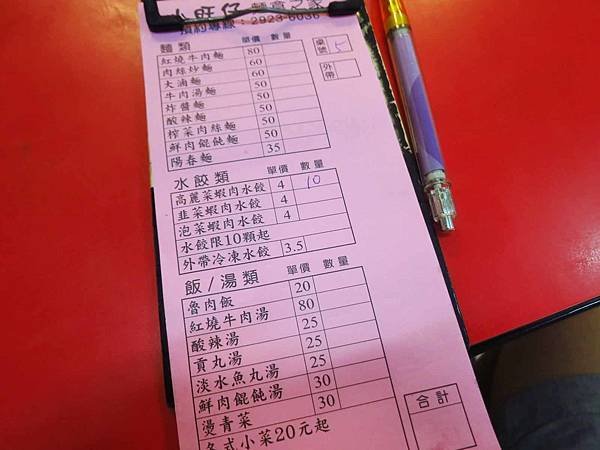 小旺仔 麵食之家
預約專線：2923-6036
麵類 單價 數量
紅燒牛肉麵 80
肉絲炒麵 60
大滷麵 60
牛肉湯麵 50
炸醬麵 50
酸辣麵 50
榨菜肉絲麵 50
鮮肉餛飩麵 50
陽春麵 35
桌號 5
外帶
水餃類 單價 數量
高麗菜蝦肉水餃 4 10
韭菜蝦肉水餃 4
泡菜蝦肉水餃 4
水餃限10顆起
外帶冷凍水餃 3.5
飯/湯類 單價 數量
魯肉飯 20
紅燒牛肉湯 80
酸辣湯 25
貢丸湯 25
淡水魚丸湯 25
鮮肉餛飩湯 30
燙青菜 30
各式小菜20元起
合計